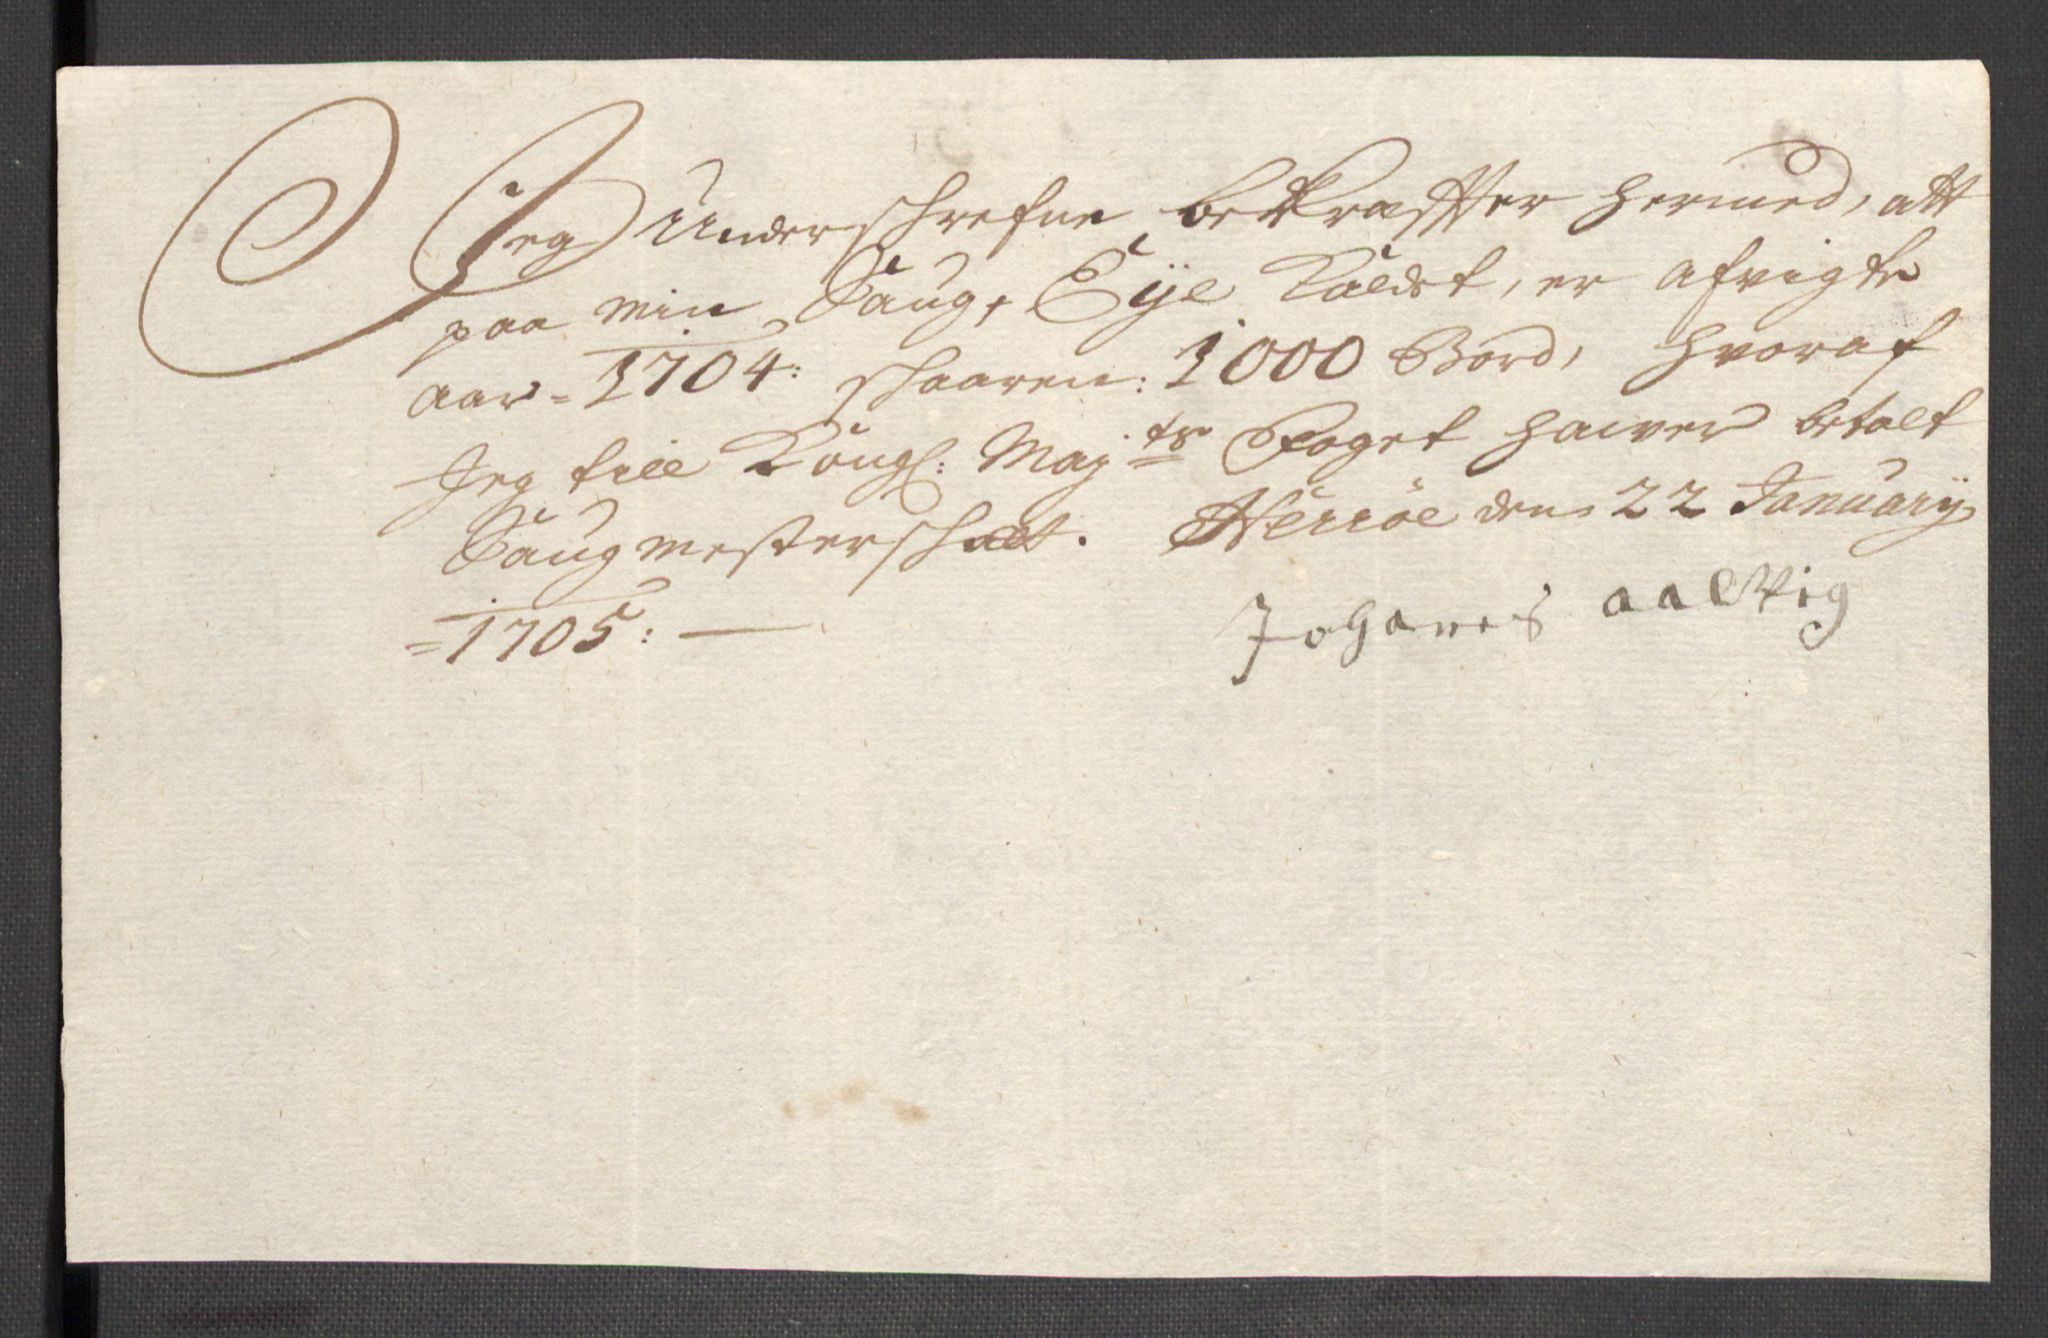 Jeg Underschrefne bekraffter hermed, att
paa min Saug, Eije Kaldet, er afvigte
aar = 1704: schaaren: 1000 Bord, hvoraf
Jeg till Kongl: Maj.ts Foget haiver betalt
Saugmesterschatt. Herröe den 22 Januarij
= 1705: —
Johanes aalvig